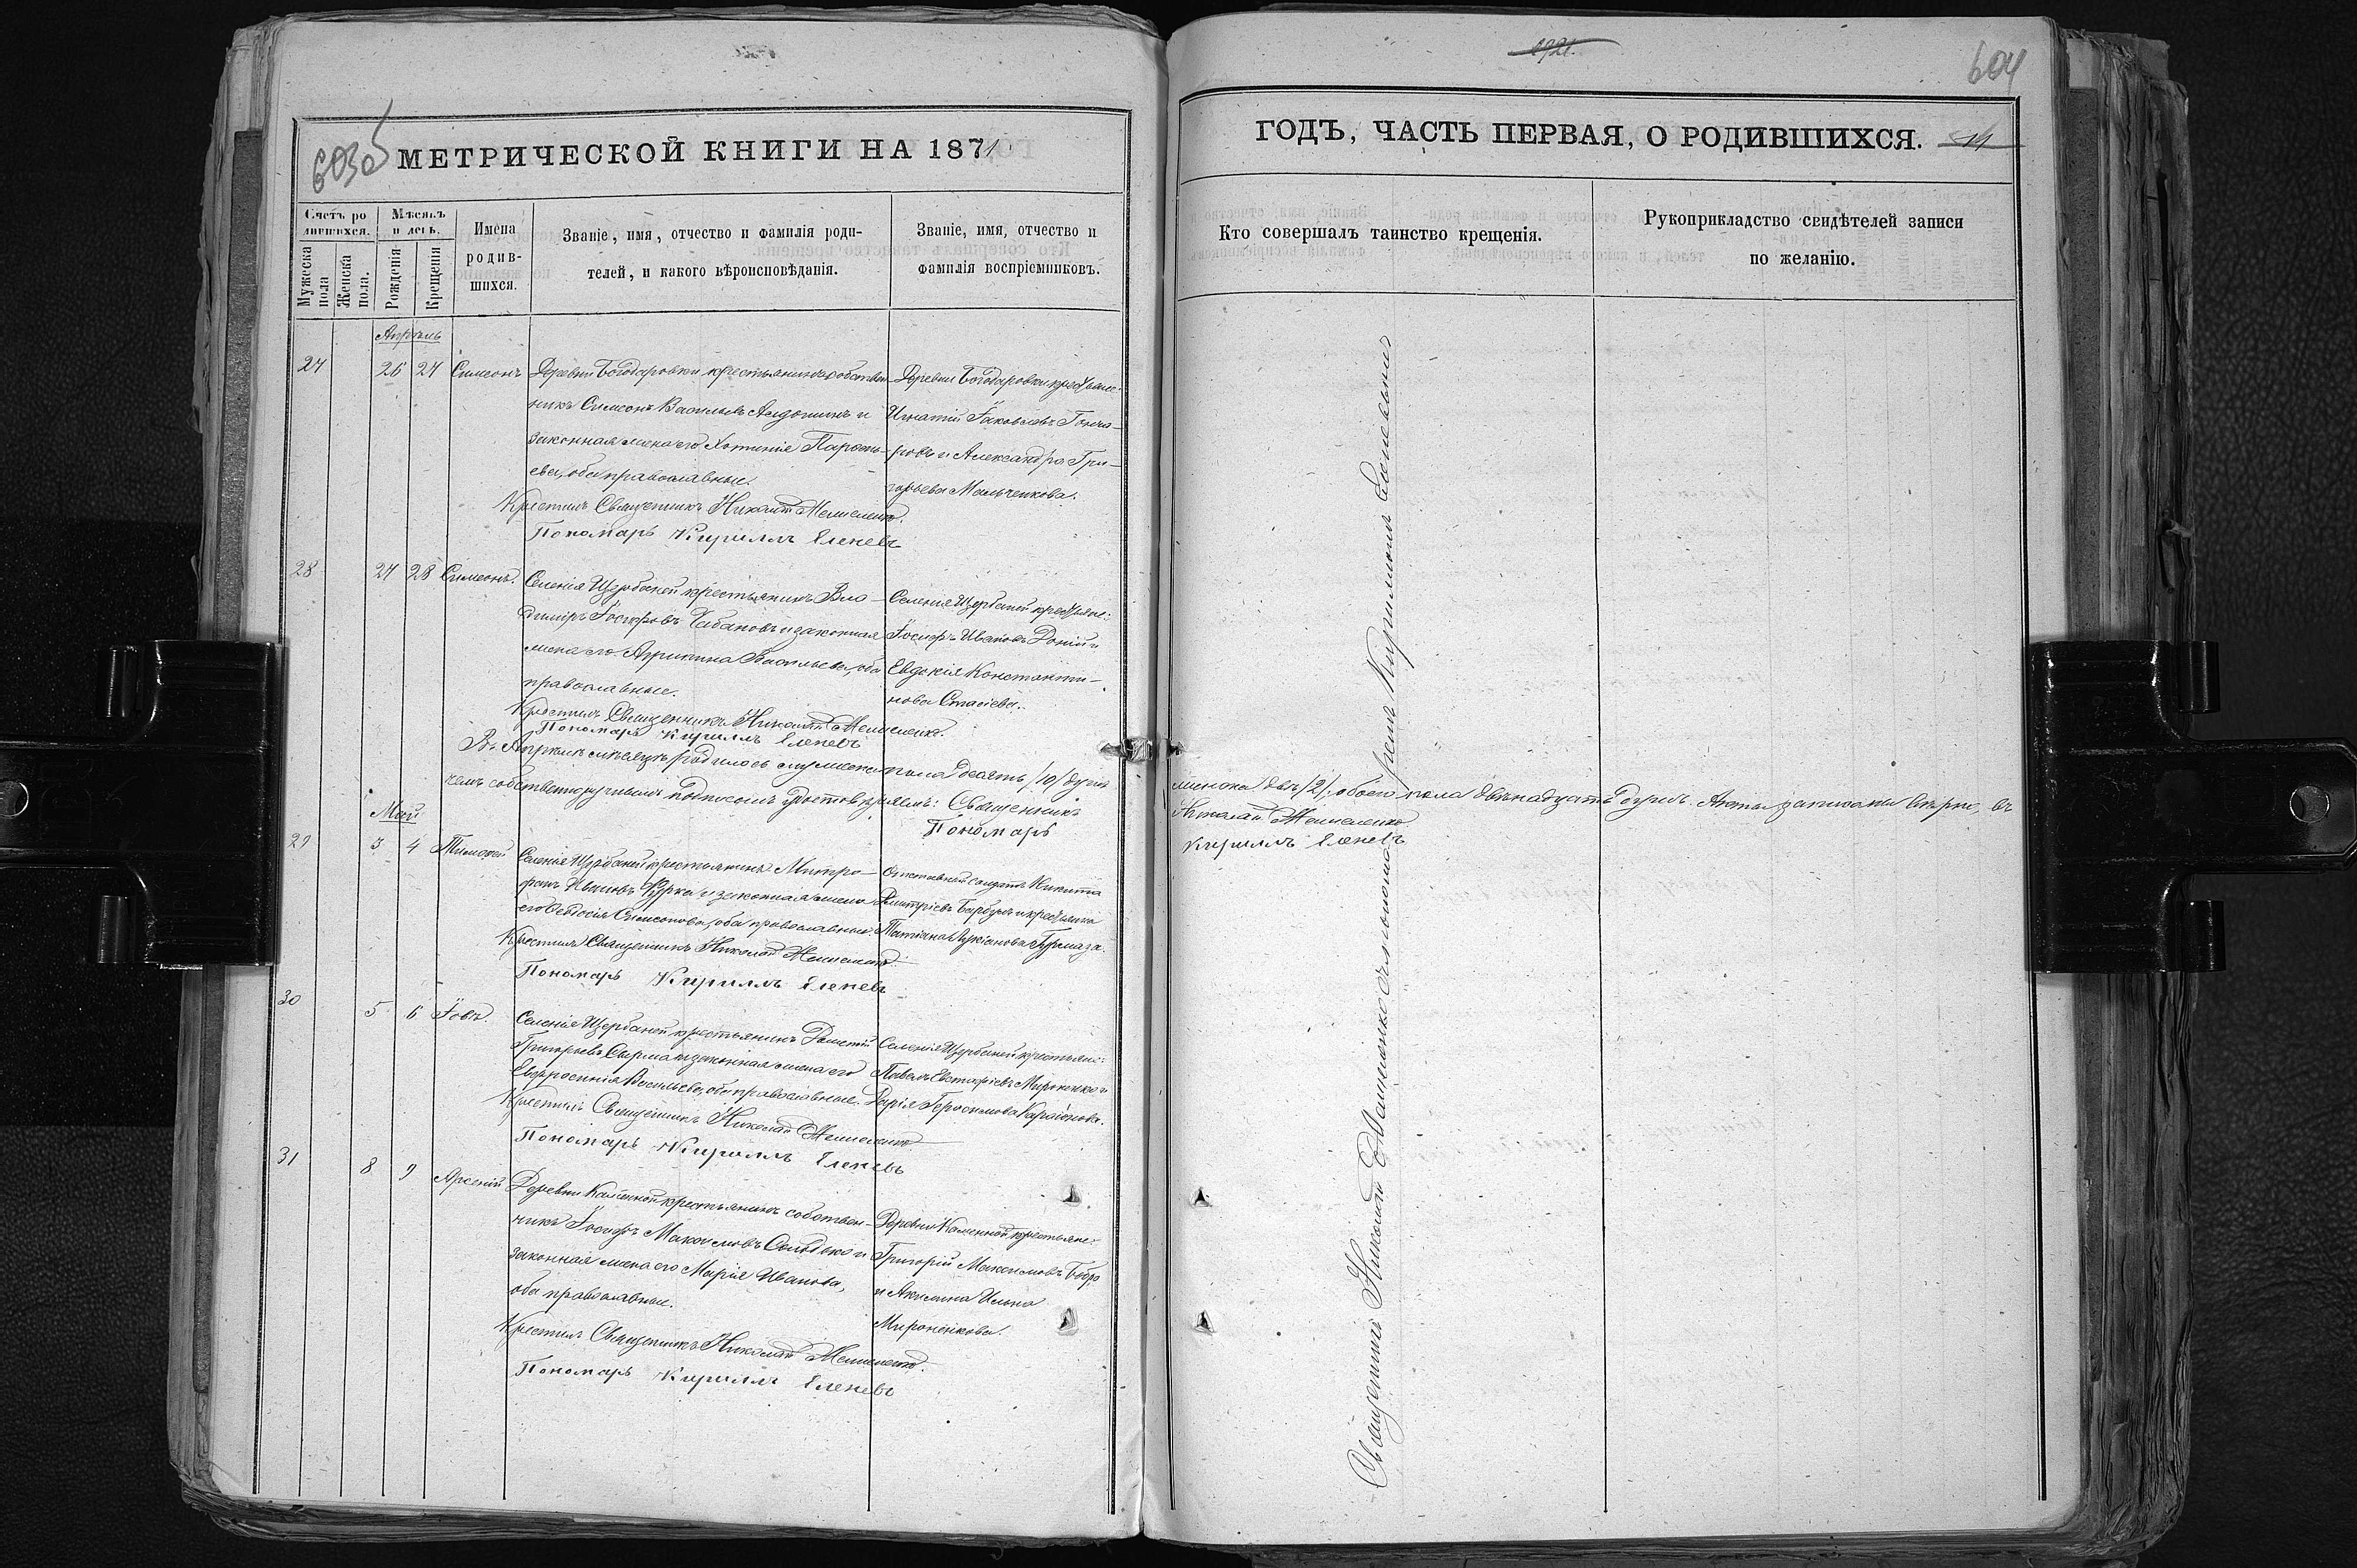 603об
МЕТРИЧЕСКОЙ КНИГИ НА 1871
Счетъ родившихся.
Мужеска пола
Женска пола.
Мѣсяцъ и день.
Рожденія
Крещенія
Имена родившихся.
Званіе, имя, отчество и фамилія родителей, и какого вѣроисповѣданія.
Званіе, имя, отчество и фамилія воспріемниковъ.
Апрѣль
27 26 27 Симеонъ
Деревни Богодаровки крестьянинъ собствен-
никъ Симеонъ Васильевъ и
законная жена его Хотинія
ева, оба православные.
Крестилъ Священникъ Николай
Пономарь Кириллъ Еленевъ
Деревни Богодаровки крестьяне:
Игнатій Іаковлевъ Гонча-
ровъ и Александра Гри-
горьева Мальченкова.
28 27 28 Симеонъ.
Селенія Щербаней крестьянинъ Вла-
димиръ Іосифовъ Чабановъ и законная
жена его Агрипина Васильева, оба
православные.
Крестилъ Священникъ Николай
Пономарь Кириллъ Еленевъ
Селенія Щербаней крестьяне:
Іосифъ Ивановъ и
Евдокія Константи-
нова Стасіева.
Въ Апрѣлѣ мѣсяцѣ родилось мужеска пола десять /10/ душъ
чемъ собственноручнымъ подписомъ удостовѣряемъ: Священникъ
Пономарь
Май
29 3 4 Тимофей
Селенія Щербаней крестьянинъ Митро-
фанъ Ивановъ и законная жена
его Феодосія Симеонова, оба православные.
Крестилъ Священникъ Николай
Пономарь Кириллъ Еленевъ
Отставной солдатъ Никита
Дмитріевъ и крестьянка
Татіана Лукіанова
30 5 6 Іовъ.
Селенія Щербаней крестьянинъ
Григорьевъ и законная жена его
Евфросинія Васильева, оба православные.
Крестилъ Священникъ Николай
Пономарь Кириллъ Еленевъ
Селенія Щербаней крестьяне:
Павелъ Евстафіевъ Мироненко и
Дарія Герасимова
31 8 9 Арсеній
Деревни Каменной крестьянинъ собствен-
никъ Іосифъ Максимовъ и
законная жена его Марія Иванова,
оба православные.
Крестилъ Священникъ Николай
Пономарь Кириллъ Еленевъ
Деревни Каменной крестьяне:
Григорій Максимовъ Бобръ
и Акилина Ильина
Мироненкова.
604
ГОДЪ, ЧАСТЬ ПЕРВАЯ, О РОДИВШИХСЯ.
Кто совершалъ таинство крещенія.
Рукоприкладство свидѣтелей записи по желанію.
женска двѣ /2/, обоего пола двѣнадцать душъ. Акты записаны вѣрно, въ
Николай
Кириллъ Еленевъ
Священникъ Николай съ пономаремъ Кирилломъ